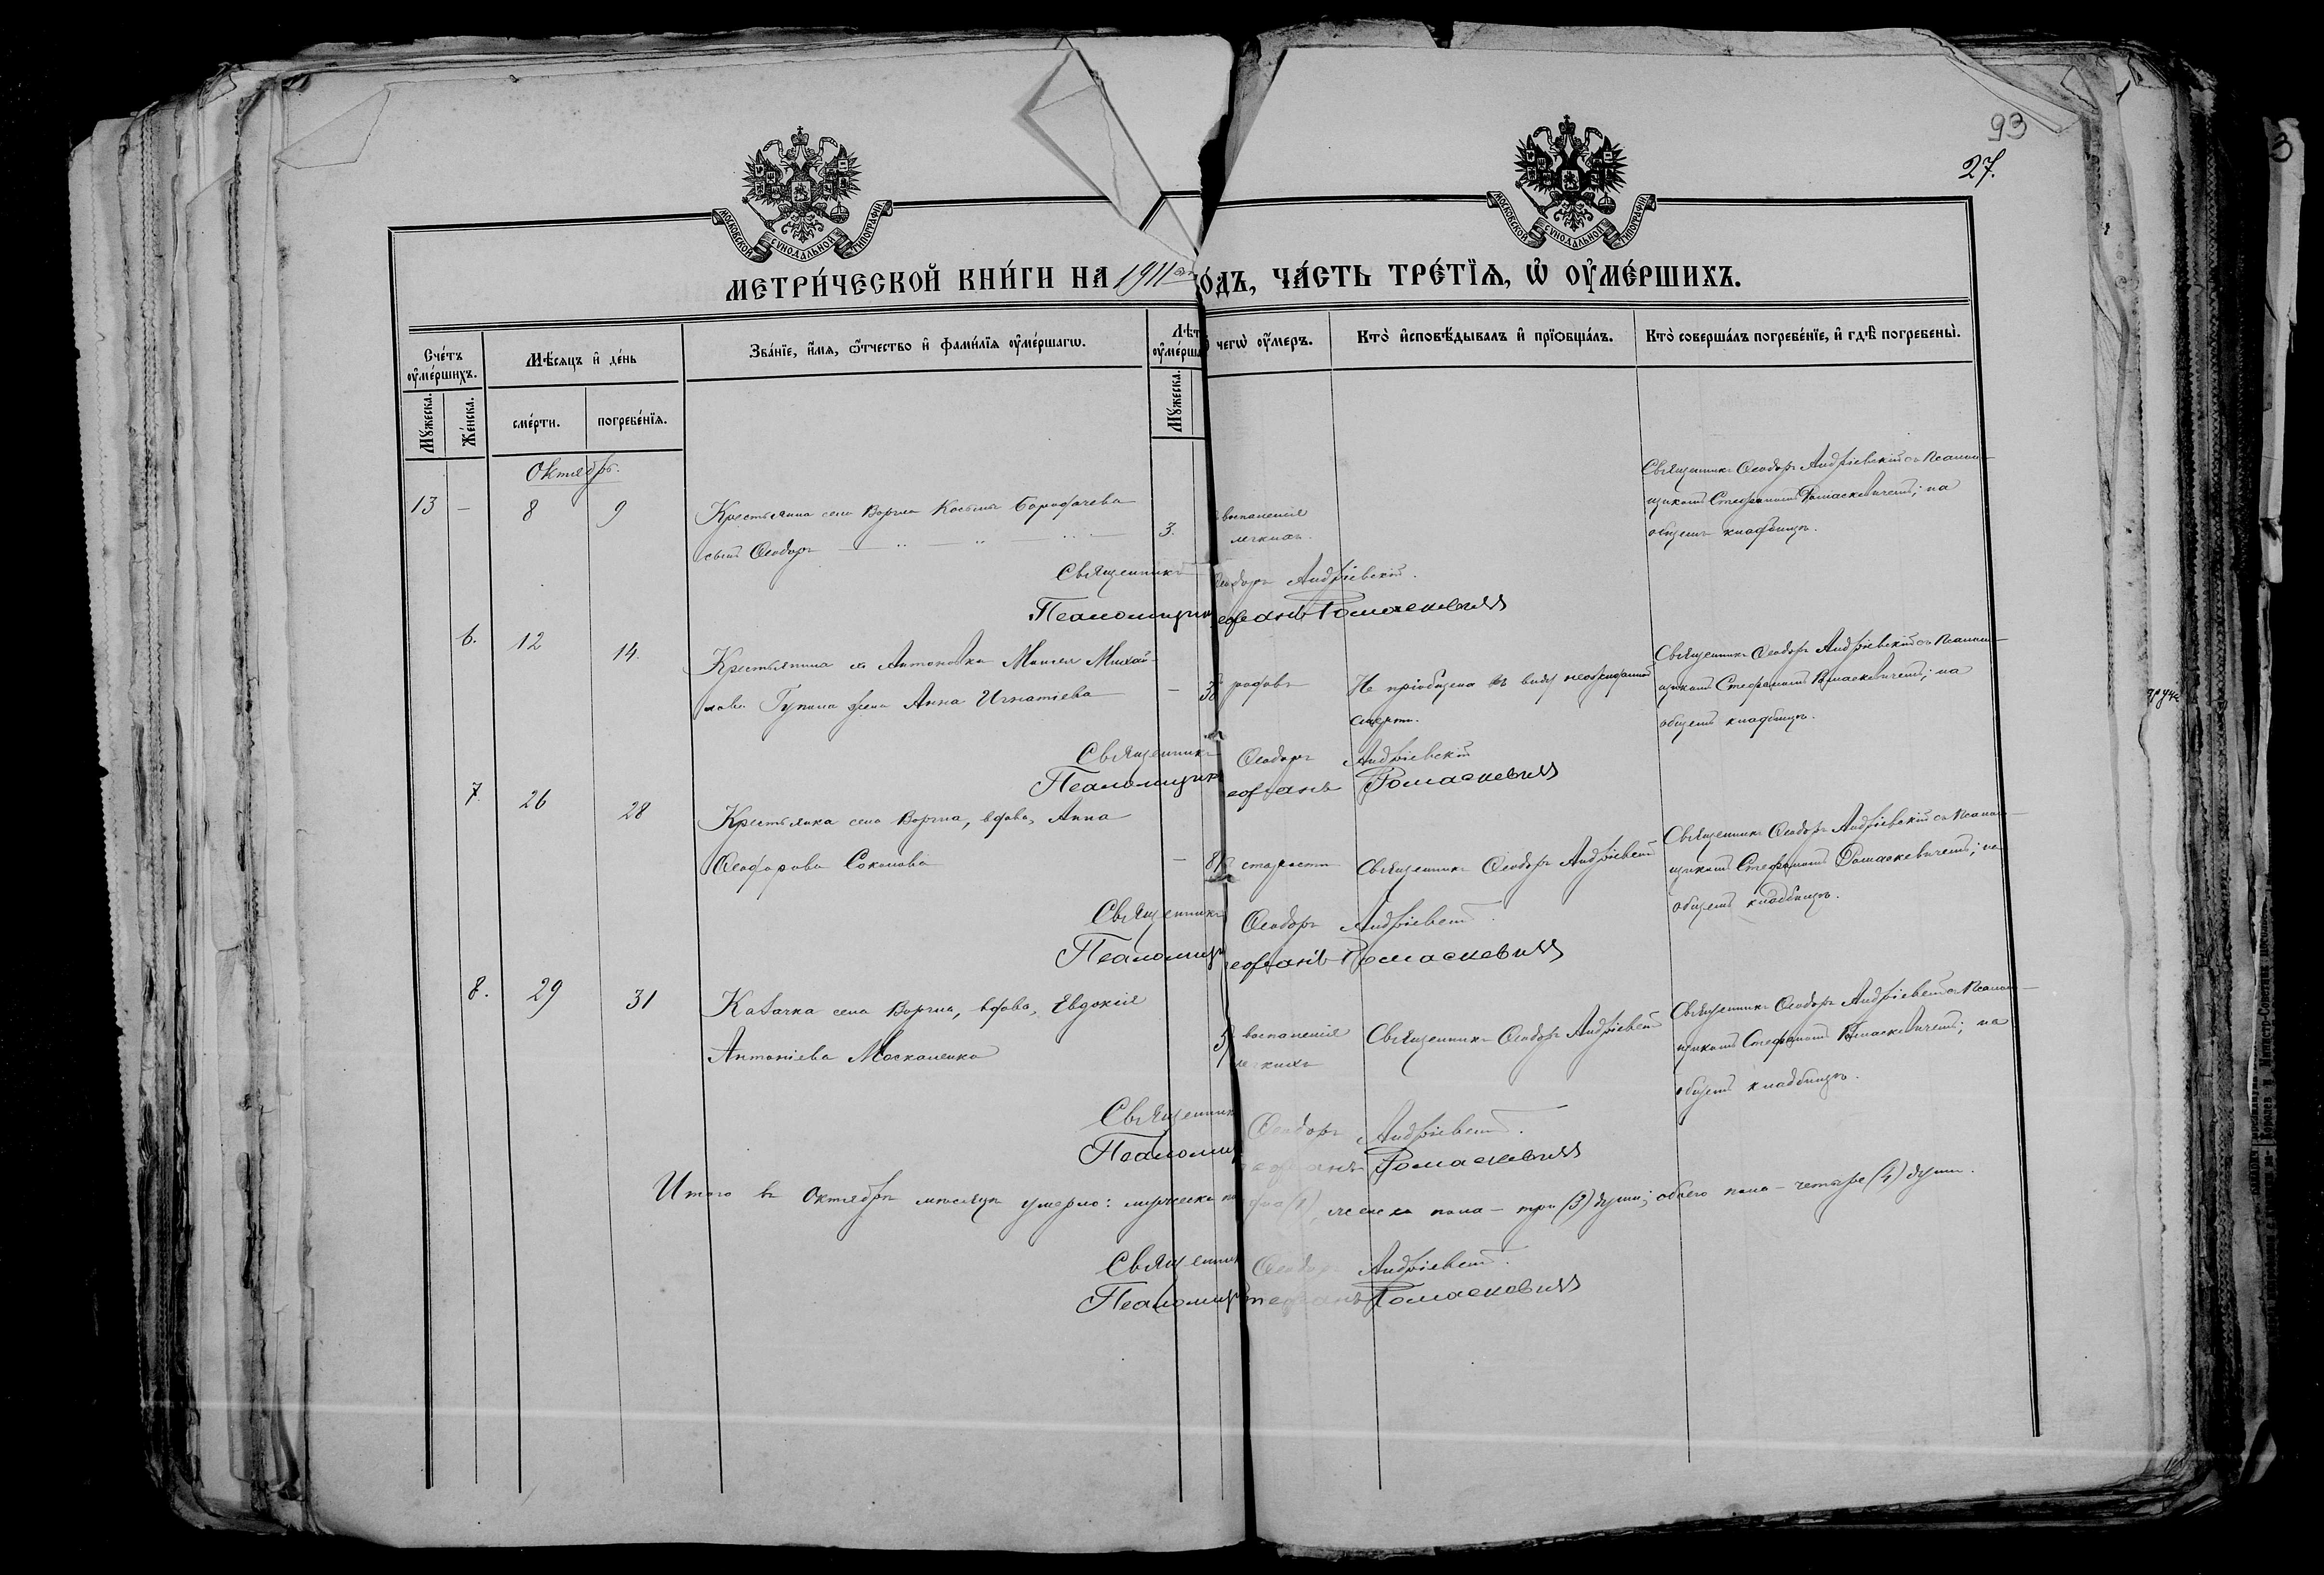 93
27.
МОСКОВСКОЙ СѴНОДАЛЬНОЙ ТИПОГРАФІИ
МОСКОВСКОЙ СѴНОДАЛЬНОЙ ТИПОГРАФІИ
МЕТРИ́ЧЕСКОЙ КНИ́ГИ НА 1911 ОДЪ, ЧА́СТЬ ТРЕ́ТЇѦ, Ѡ҆ ОУ҆МЕ́РШИХЪ.
Сче́тъ оу҆ме́ршихъ.
Мѣ́сяцъ и҆ де́нь
Зва́нїе, и҆́мя, ѻ҆́тчество и҆ фами́лїя оу҆ме́ршагѡ.
Лѣт оу҆ме́рша
чегѡ̀ оу҆́меръ.
Кто̀ и҆сповѣ́дывалъ и҆ прїѻбща́лъ.
Кто̀ соверша́лъ погребе́нїе, и҆ гдѣ̀ погребены̀.
Мꙋ́жеска.
Же́нска.
сме́рти.
погребе́нїя.
Мꙋ́жеска.
Октябрь.
13 — 8 9 Крестьянина села Воргла Косьмы
сынъ Ѳеодоръ 3.
воспаленія
легкихъ.
Священникъ Ѳеодоръ Андріевскій съ Псалом-
щикомъ Стефаномъ Ромаскевичемъ; на
общемъ кладбищѣ.
Священникъ Ѳеодоръ Андріевскій.
Псаломщик ефанъ Ромаскевичъ
6. 12 14. Крестьянина д. Антоновки Михай-
лова жена Анна Игнатіева — 38
родовъ
Не пріобщена въ виду неожиданной
смерти.
Священникъ Ѳеодоръ Андріевскій съ Псалом-
щикомъ Стефаномъ Ромаскевичемъ; на
общемъ кладбищѣ.
Священникъ Ѳеодоръ Андріевскій
Псаломщикъ ефанъ Ромаскевичъ
7. 26 28 Крестьянка села Воргла, вдова, Анна
Ѳеодорова Соколова —
старости
Священникъ Ѳеодоръ Андріевскій
Священникъ Ѳеодоръ Андріевскій съ Псалом-
щикомъ Стефаномъ Ромаскевичемъ; на
общемъ кладбищѣ.
Священникъ Ѳеодоръ Андріевскій.
Псаломщ ефанъ Ромаскевичъ
8. 29 31 Казачка села Воргла, вдова, Евдокія
Антоніева Москаленко
воспаленія
легкихъ
Священникъ Ѳеодоръ Андріевскій
Священникъ Ѳеодоръ Андріевскій съ Псалом-
щикомъ Стефаномъ Ромаскевичемъ; на
общемъ кладбищѣ.
Священник Ѳеодоръ Андріевскій.
Псаломщ ефанъ Ромаскевичъ
Итого въ Октябрѣ мѣсяцѣ умерло: мужеска по (1), женска пола — три (3) души; обоего пола — четыре (4) души.
Священник Ѳеодоръ Андріевскій.
Псаломщ тефанъ Ромаскевичъ